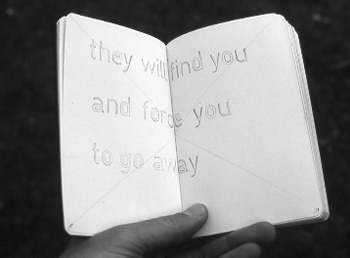 they will find you
and force you
to go away